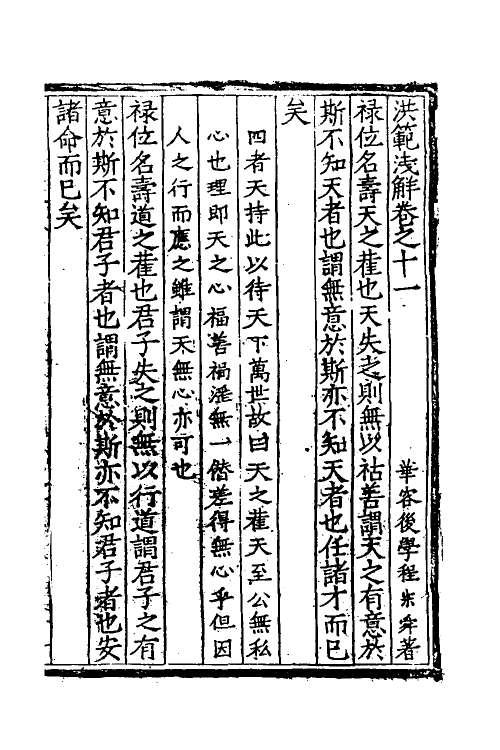 洪範浅解卷之十一　華容後學程宗舜著
禄位名壽天之權也天失之則無以祜善謂天之有意於
斯不知天者也謂無意於斯亦不知天者也任諸才而已
矣
四者天持此以待天下萬世故曰天之權天至公無私
心也理即天之心福善禍淫無一僭差得無心乎但因
人之行而應之雖謂天無心亦可也
禄位名壽道之權也君子失之則無以行道謂君子之有
意於斯不知君子者也謂無意於斯亦不知君子者也安
諸命而已矣